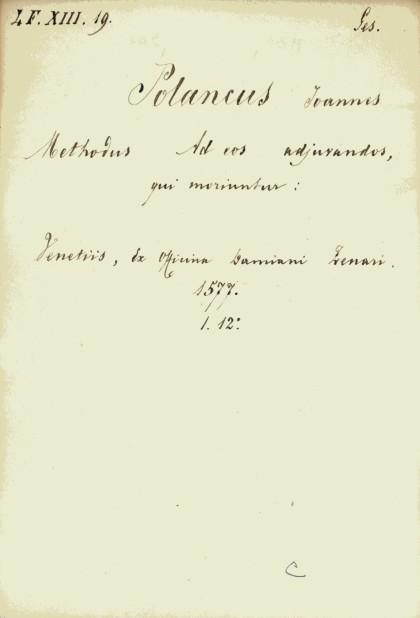 4 F. XIII. 19. Ges.
Polancus Joannes
Methodus Ad eos adjuvandos,
qui moriuntur :
Venetiis, Ex Officina Damiani Zenari.
1577.
1. 12°
C